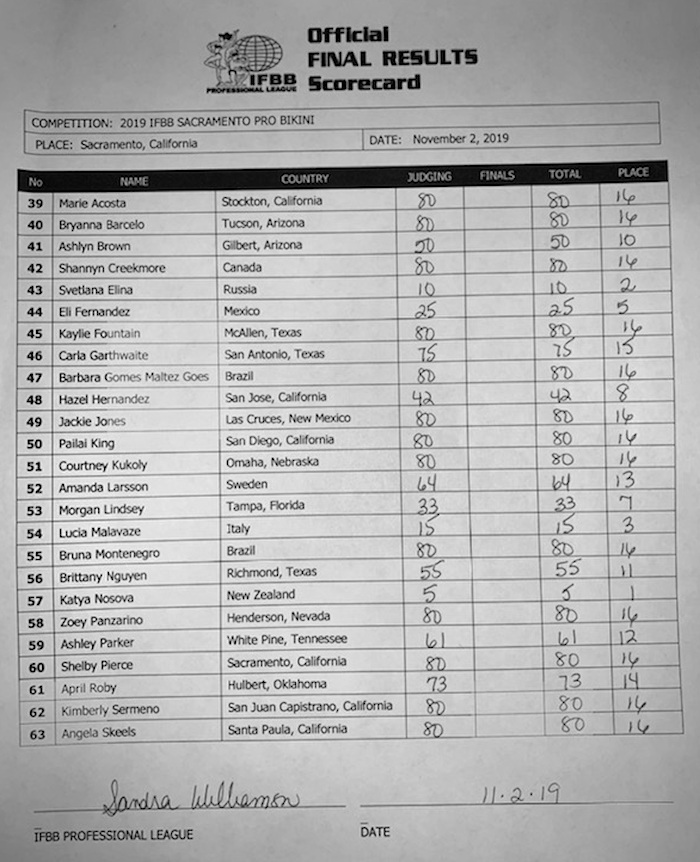 Official
FINAL RESULTS
Scorecard
IFBB
PROFESSIONAL LEAGUE
COMPETITION: 2019 IFBB SACRAMENTO PRO BIKINI
PLACE: Sacramento, California DATE: November 2, 2019
No NAME COUNTRY JUDGING FINALS TOTAL PLACE
39 Marie Acosta Stockton, California 80 80 16
40 Bryanna Barcelo Tucson, Arizona 80 80 16
41 Ashlyn Brown Gilbert, Arizona 50 50 10
42 Shannyn Creekmore Canada 80 80 16
43 Svetlana Elina Russia 10 10 2
44 Eli Fernandez Mexico 25 25 5
45 Kaylie Fountain McAllen, Texas 80 80 16
46 Carla Garthwaite San Antonio, Texas 75 75 15
47 Barbara Gomes Maltez Goes Brazil 80 80 16
48 Hazel Hernandez San Jose, California 42 42 8
49 Jackie Jones Las Cruces, New Mexico 80 80 16
50 Pailai King San Diego, California 80 80 16
51 Courtney Kukoly Omaha, Nebraska 80 80 16
52 Amanda Larsson Sweden 64 64 13
53 Morgan Lindsey Tampa, Florida 33 33 7
54 Lucia Malavaze Italy 15 15 3
55 Bruna Montenegro Brazil 80 80 16
56 Brittany Nguyen Richmond, Texas 55 55 11
57 Katya Nosova New Zealand 5 5 1
58 Zoey Panzarino Henderson, Nevada 80 80 16
59 Ashley Parker White Pine, Tennessee 61 61 12
60 Shelby Pierce Sacramento, California 80 80 16
61 April Roby Hulbert, Oklahoma 73 73 14
62 Kimberly Sermeno San Juan Capistrano, California 80 80 16
63 Angela Skeels Santa Paula, California 80 80 16
Sandra Williamson 11·2·19
IFBB PROFESSIONAL LEAGUE DATE